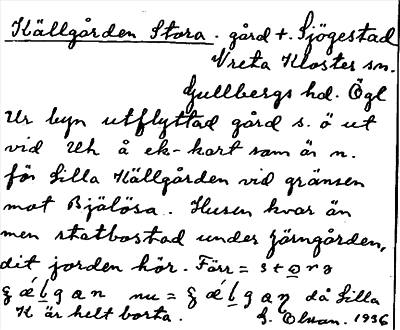 Källgården Stora . gård t. Sjögestad
Vreta Kloster sn.
Gullbergs hd. Ögl
Ur byn utflyttad gård s. ö ut
vid Uh å ek-kart som är n.
för Lilla Källgården vid gränsen
mot Bjälösa. Husen kvar än
men statbostad under Järngården,
dit jorden hör. Förr = s t o r a
g a n nu = då Lilla
K är helt borta. 1936